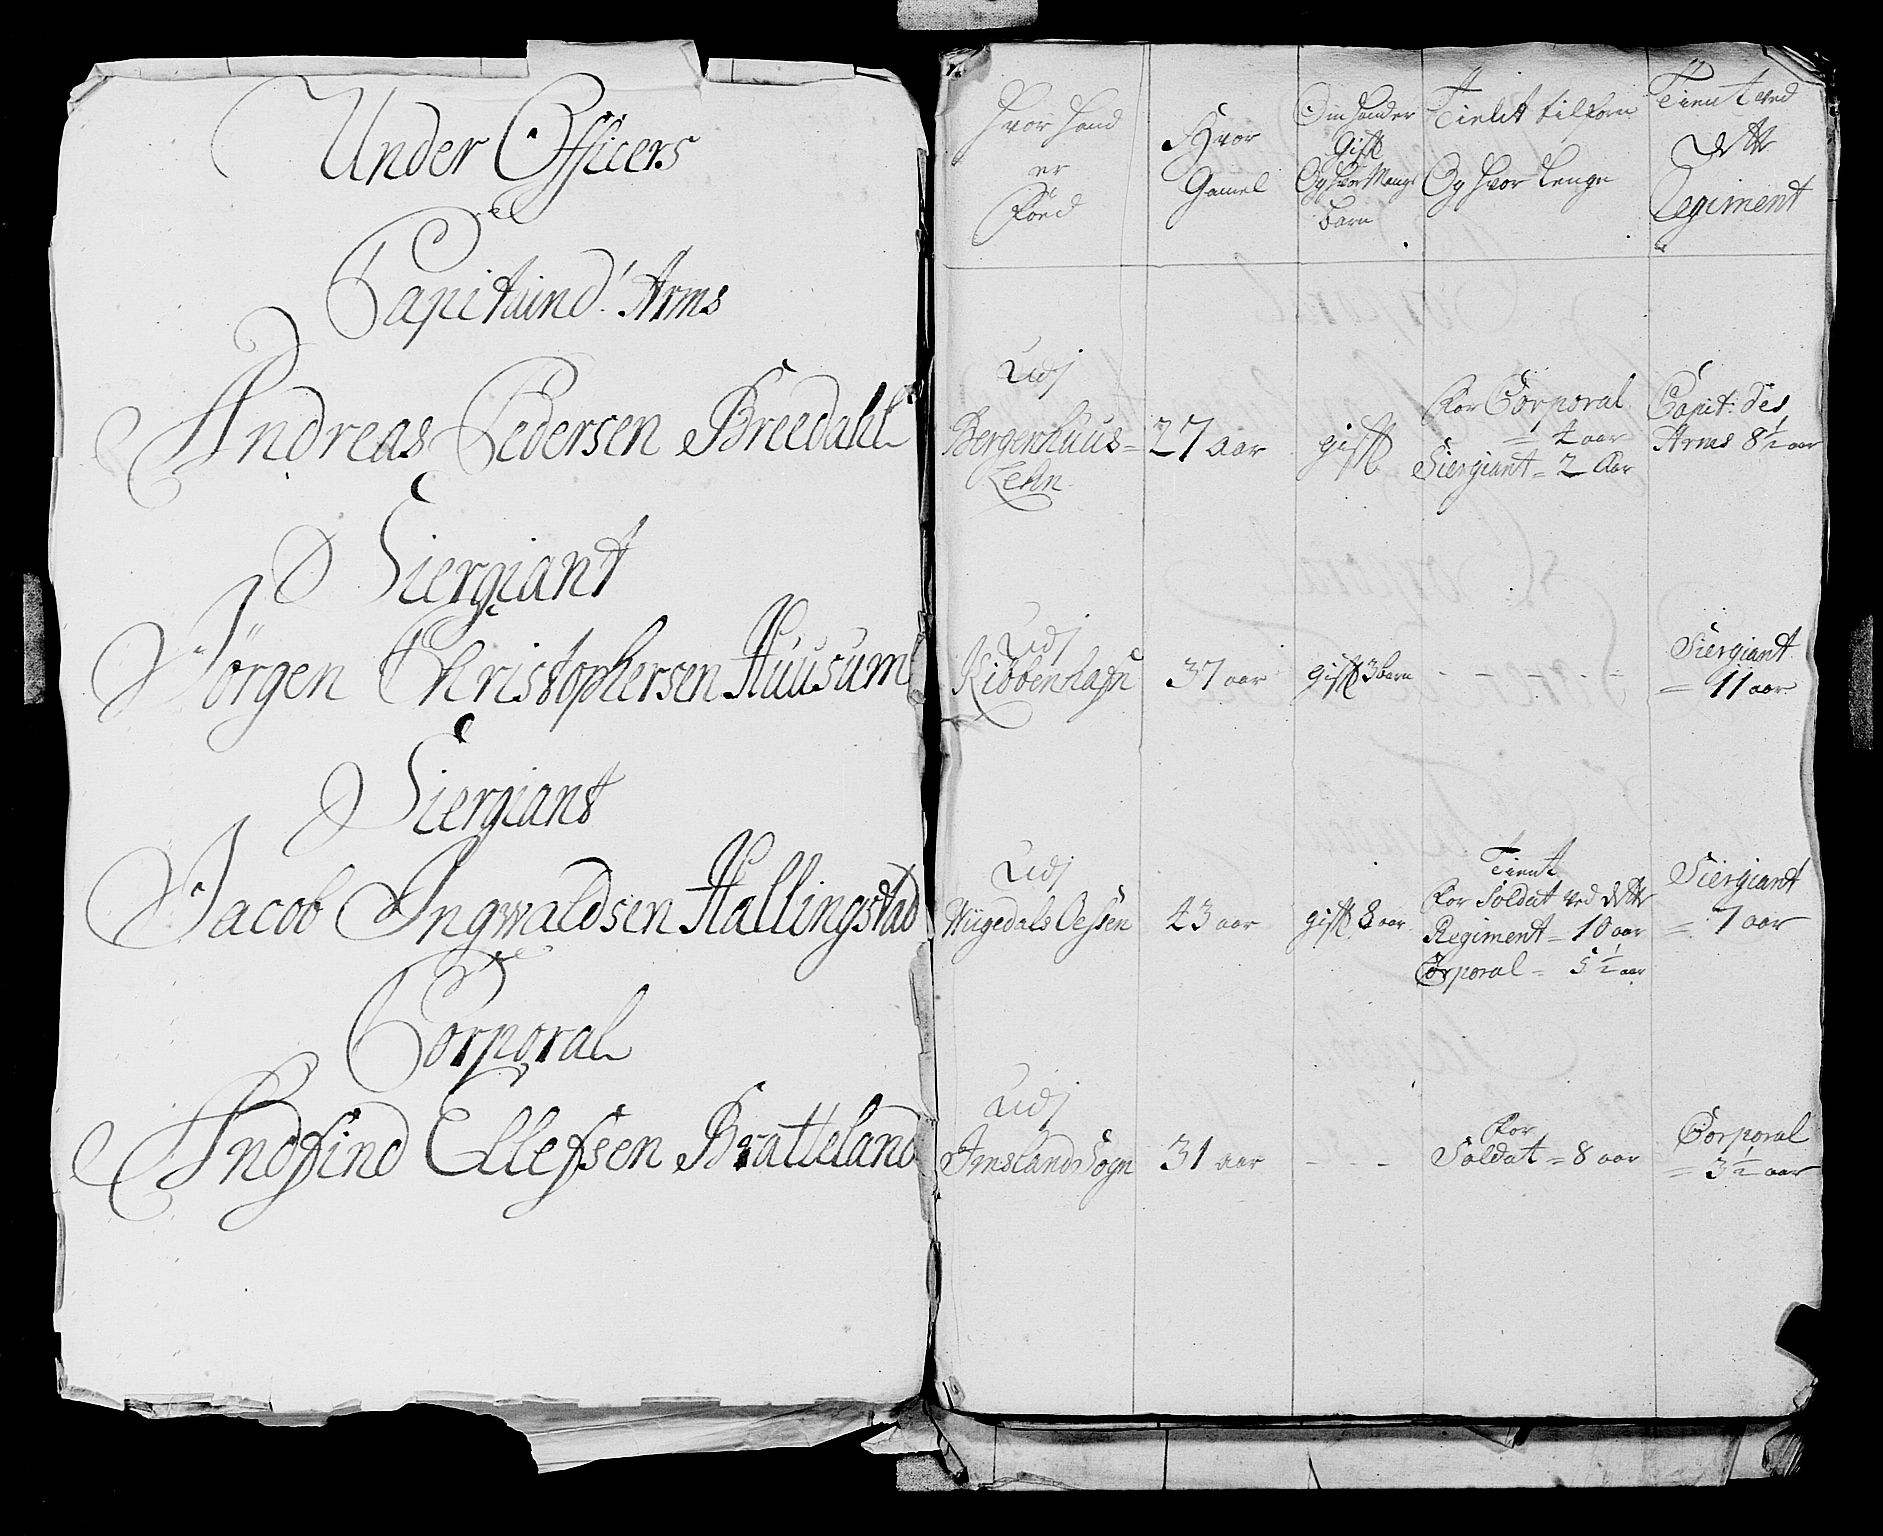 Under Officers
Capitaind' Arms
Andreas Pedersen Breedahl
Siergiant
Jörgen Christophersen Huusum
Siergiant
Jacob Ingwaldsen Hallingstad
Corporal
Andfind Ellefsen Bratteland
Hvor hand
er
Föed
Hvor
Gamel
Om hand er
Gift
Og hvor Mange
barn
Tient tilforn
Og hvor lenge
Tient ved
dette
Regiment
Udj
Bergenhuus=
Lehn
27 aar
gift
For Corporal
= 4 aar
Siergiant = 2 Aar
Capit: des
Arms 8½ aar
Udj
Kibbenhafn
37 aar
gift 3 barn
- - - - -
Siergiant
= 11 aar
Udj
Wiigedals Oessen
43 aar
gift 8 aar
Tient
For Soldat ved dette
Regiment = 10 aar
Corporal = 5½ aar
Siergiant
= 7 aar
Udj
Imsland Sogn
31 aar
- - -
For
Soldat = 8 aar
Corporal
= 3½ aar